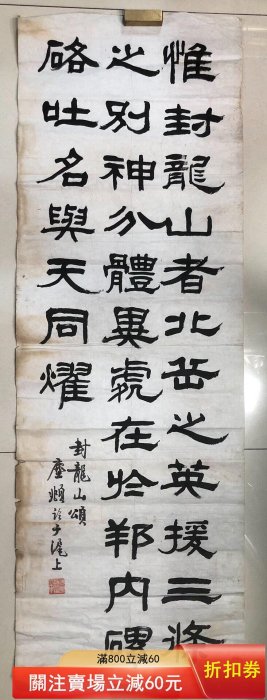 惟封龍山者北岳之英援三條
之别神分體異處在於邦内磥
硌吐名與天同燿
封龍山頌
滬上
滿800立減60
關注賣場立減60元
折扣券